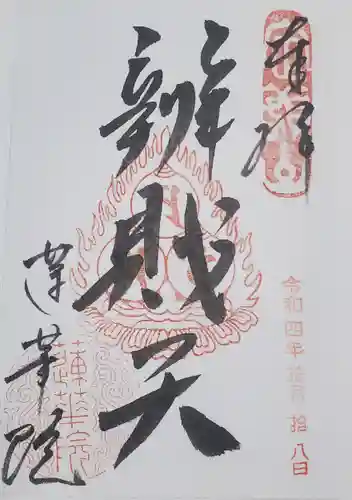 奉拝
辨財天
令和四年拾月拾八日
蓮華院
蓮華院